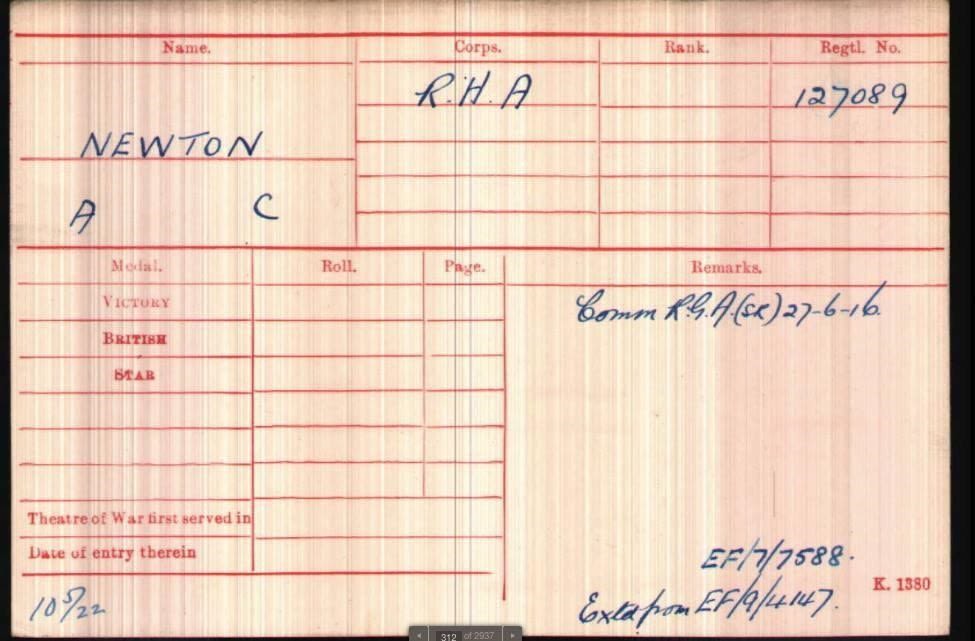 Name. Corps. Rank. Regtl. No.
R.H.A 127089
NEWTON
A C
Medal. Roll. Page. Remarks.
VICTORY
Comm R.G.A.(SR) 27-6-16.
BRITISH
STAR
Theatre of War first served in
Date of entry therein
EF/7/7588.
K. 1380
10 5/22
Extd from EF/9/4147.
312 of 2937